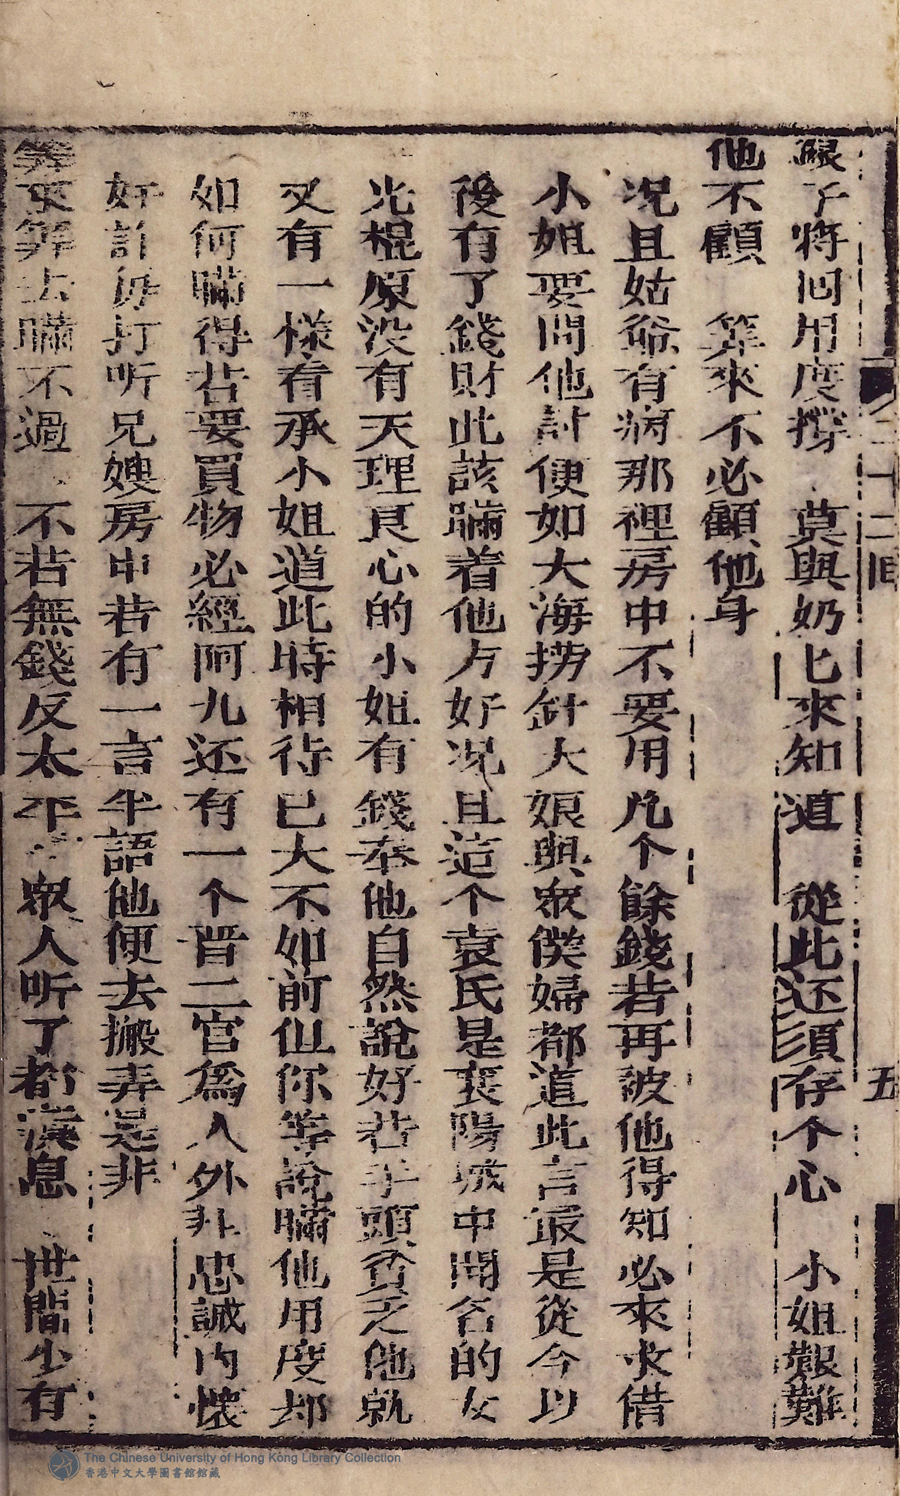 銀子將回用度撐　莫與奶匕來知道　從此还須存个心　小姐艱難
他不顧　算來不必顧他身
况且姑爺有病那裡房中不要用凢个餘錢若再被他得知必來求借
小姐要問他討便如大海撈針大娘與衆僕婦都道此言最是從今以
後有了錢財此該瞞着他方好况且這个袁氏是襄陽城中聞名的女
光棍原没有天理良心的小姐有錢奉他自然說好若手頭貧乏他就
又有一樣看承小姐道此時相待已大不如前但你等說瞞他用度却
如何瞞得若要買物必經阿九还有一个晋二官爲人外非忠誠内懷
奸詐毎打听兄嫂房中若有一言半語他便去搬弄是非
筭來筭去瞞不過　不若無錢反太平　衆人听了都漢息　世間少有
二十二囬
五
The Chinese University of Hong Kong Library Collection
香港中文大學圖書館館藏